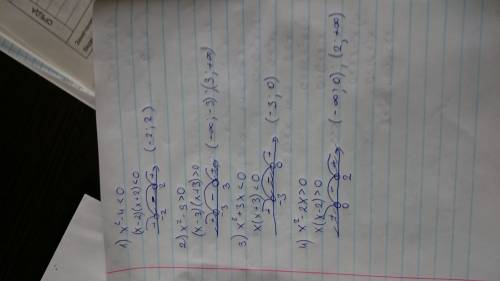 1) x²-4<0
(x-2)(x+2)<0
+ - +
-2 2 (-2; 2)
2) x²-9>0
(x-3)(x+3)>0
+ - +
-3 3 (-∞; -3); (3; +∞)
3) x²+3x<0
x(x+3)<0
+ - +
-3 0 (-3; 0)
4) x²-2x>0
x(x-2)>0
+ - +
0 2 (-∞; 0); (2; +∞)